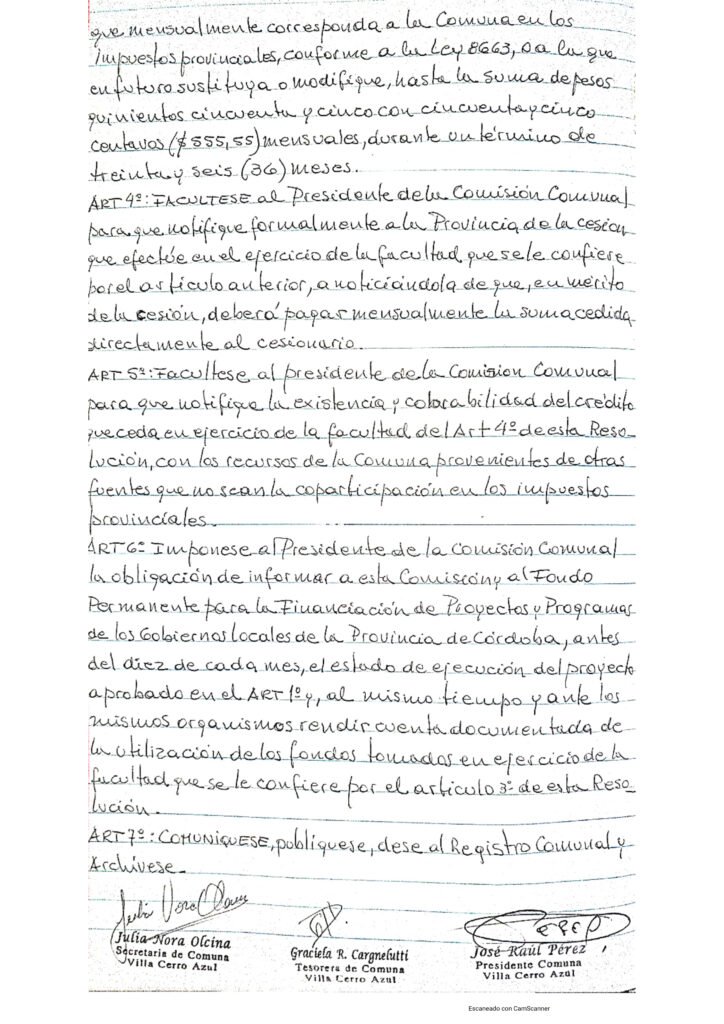 que mensualmente corresponda a la Comuna en los
impuestos provinciales, conforme a la Ley 8663, o a la que
en futuro sustituya o modifique, hasta la suma de pesos
quinientos cincuenta y cinco con cincuenta y cinco
centavos ($555,55) mensuales, durante un término de
treinta y seis (36) meses.
ART 4º: FACULTESE al Presidente de la Comisión Comunal
para que notifique formalmente a la Provincia de la cesion
que efectúe en el ejercicio de la facultad que se le confiere
por el artículo anterior, anoticiándola de que, en mérito
de la cesión, deberá pagar mensualmente la suma cedida
directamente al cesionario.
ART 5º: Facultese al presidente de la Comision Comunal
para que notifique la existencia y cobrabilidad del crédito
que ceda en ejercicio de la facultad del Art 4º de esta Reso-
lución, con los recursos de la Comuna provenientes de otras
fuentes que no sean la coparticipación en los impuestos
provinciales.
ART 6º Imponese al Presidente de la Comisión Comunal
la obligación de informar a esta Comisión y al Fondo
Permanente para la Financiación de Proyectos y Programas
de los Gobiernos locales de la Provincia de Córdoba, antes
del diez de cada mes, el estado de ejecución del proyecto
aprobado en el ART 1º y, al mismo tiempo y ante los
mismos organismos rendir cuenta documentada de
la utilización de los fondos tomados en ejercicio de la
facultad que se le confiere por el articulo 3º de esta Reso-
lución.
ART 7º: COMUNIQUESE, publíquese, dese al Registro Comunal y
Archívese.
Julia Nora Olcina
Secretaria de Comuna
Villa Cerro Azul
Graciela R. Cargnelutti
Tesorera de Comuna
Villa Cerro Azul
José Raúl Pérez
Presidente Comuna
Villa Cerro Azul
Escaneado con CamScanner